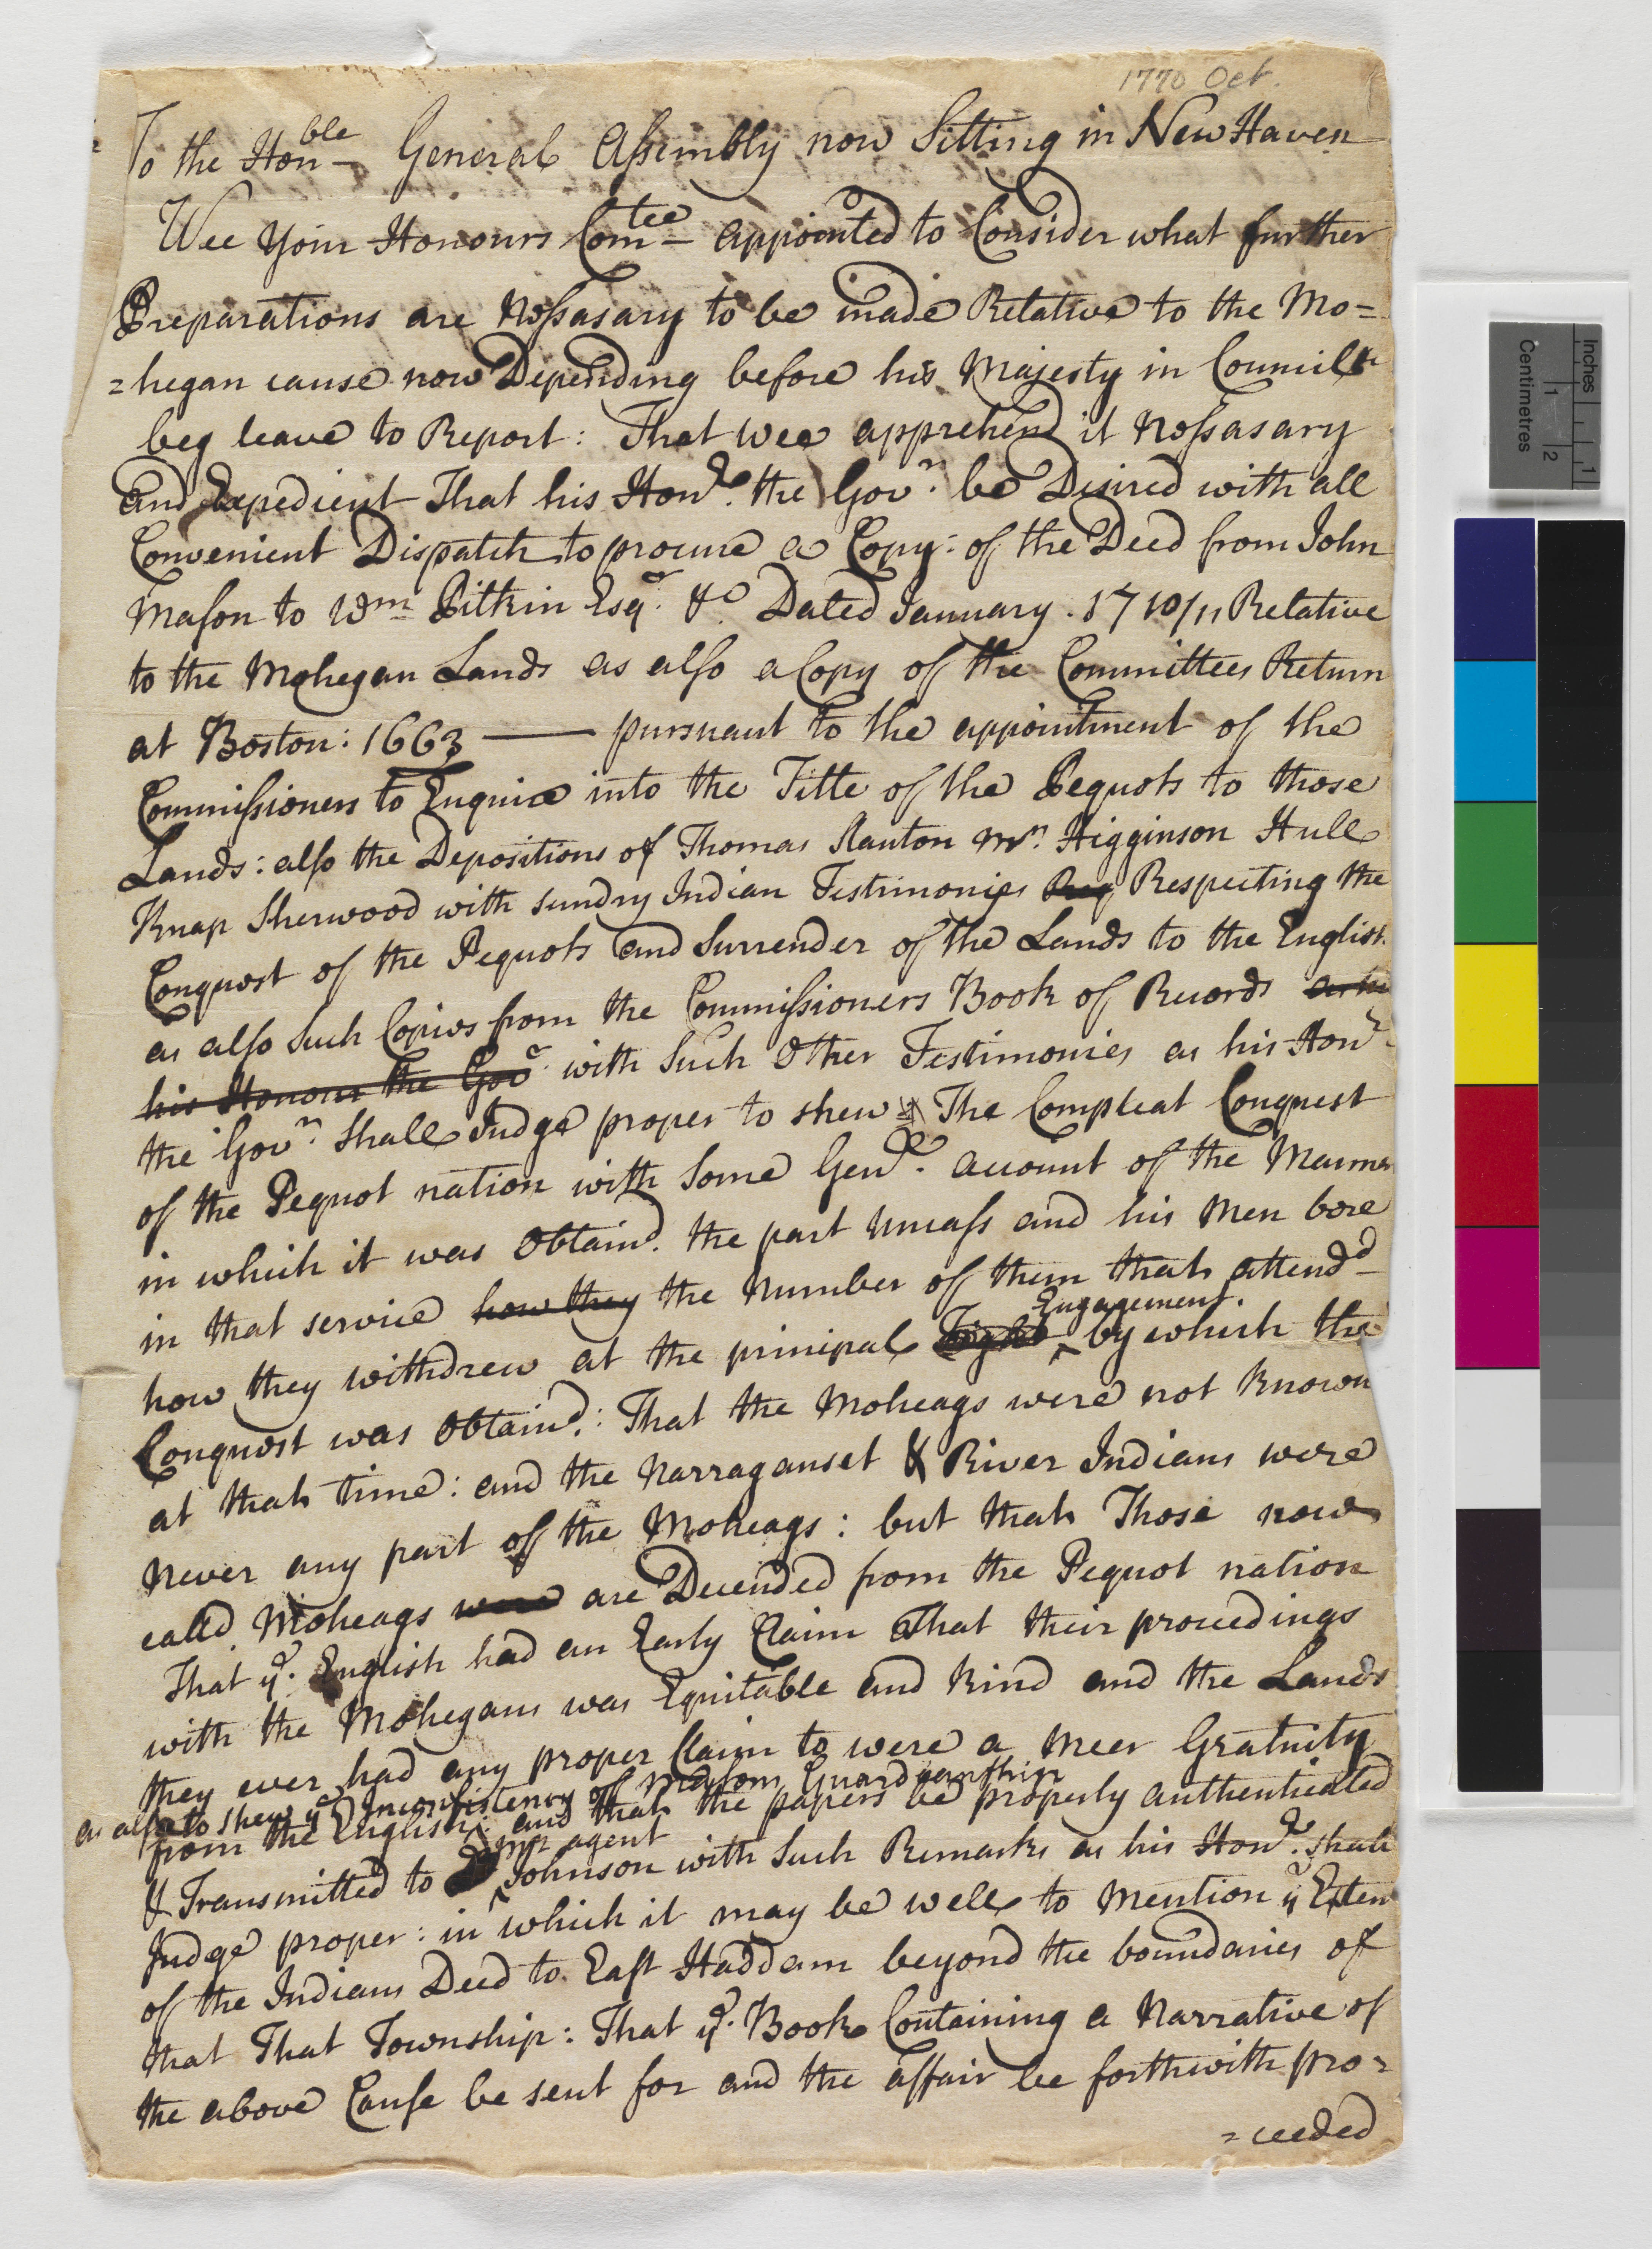 1770 Oct.
To the Honble General Assembly now Sitting in New Haven
Wee Your Honours Comtee appointed to Consider what further
Preparations are Nessasary to be made Relative to the Mo=
=hegan cause now Depending before his Majesty in Council
beg leave to Report: That wee apprehend it Nessasary
and Expedient That his Honr. the Govr. be Desired with all
Convenient Dispatch to procure a Copy: of the Deed from John
Mason to Wm Pitkin Esqr. &c. Dated January. 1710/11 Relative
to the Mohegan Lands as also a Copy of the Committees Return
at Boston: 1663 —— pursuant to the appointment of the
Commissioners to Enquire into the Title of the Pequots to those
Lands: also the Depositions of Thomas Stanton Mr. Higginson Hull
Knap Sherwood with sundry Indian Testimonies Reg Respecting the
Conquest of the Pequots and Surrender of the Lands to the English
as also Such Copies from the Commissioners Book of Records as
his Honour the Govr. with Such Other Testimonies as his Honr.
the Govr. Shall Judge proper to shew The Compleat Conquest
of the Pequot nation with Some Genll. account of the Manner
in which it was Obtaind. the part Uncass and his Men bore
in that service how they the Number of them that attendd
how they withdrew at the principal Fight Engagement. by which the
Conquest was Obtaind.: That the Moheags were not known
at that time: and the Narraganset & River Indians were
Never any part of the Moheags: but that Those now
calld Moheags were are Decended from the Pequot nation
That ye. English had an Early Claim That their proceedings
with the Mohegans was Equitable and kind and the Lands
they ever had any proper Claim to were a meer Gratuity
as also to shew ye Inconsistency of Masons Guardianship
from the English: and that the papers be properly authenticated
& Transmitted to Mr agent Johnson with Such Remarks as his Honr. shall
Judge proper: in which it may be well to Mention ye Exten
of the Indians Deed to East Haddam beyond the boundaries of
that That Township: That ye. Book Containing a Narrative of
the above Cause be sent for and the affair be forthwith pro=
=ceeded
Inches
Centimetres
1
2
1